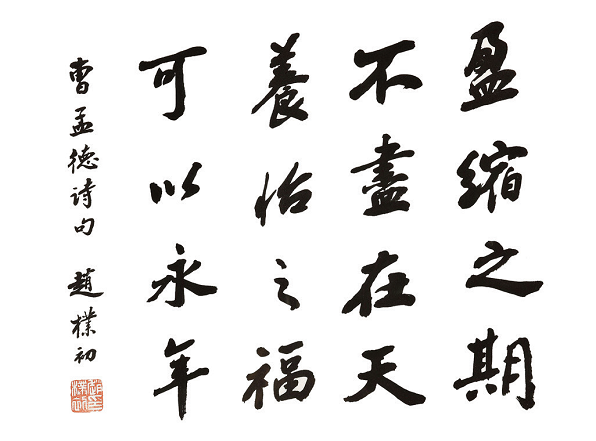 盈縮之期
不盡在天
養怡之福
可以永年
曹孟德诗句 趙樸初